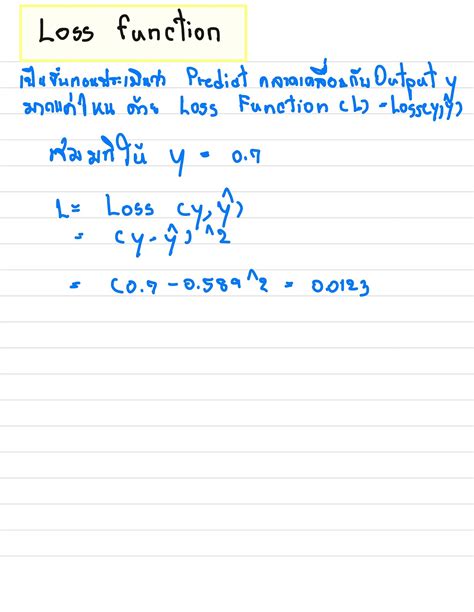 Loss function
เป็นขั้นตอนประเมินว่า Predict คลาดเคลื่อนกับ Output y
มากแค่ไหน ด้วย Loss Function (L) = Loss(y,ŷ)
เช่น มทิให้ y = 0.7
L = Loss (y,ŷ)
= (y - ŷ)^2
= (0.7 - 0.589^2 = 0.0123